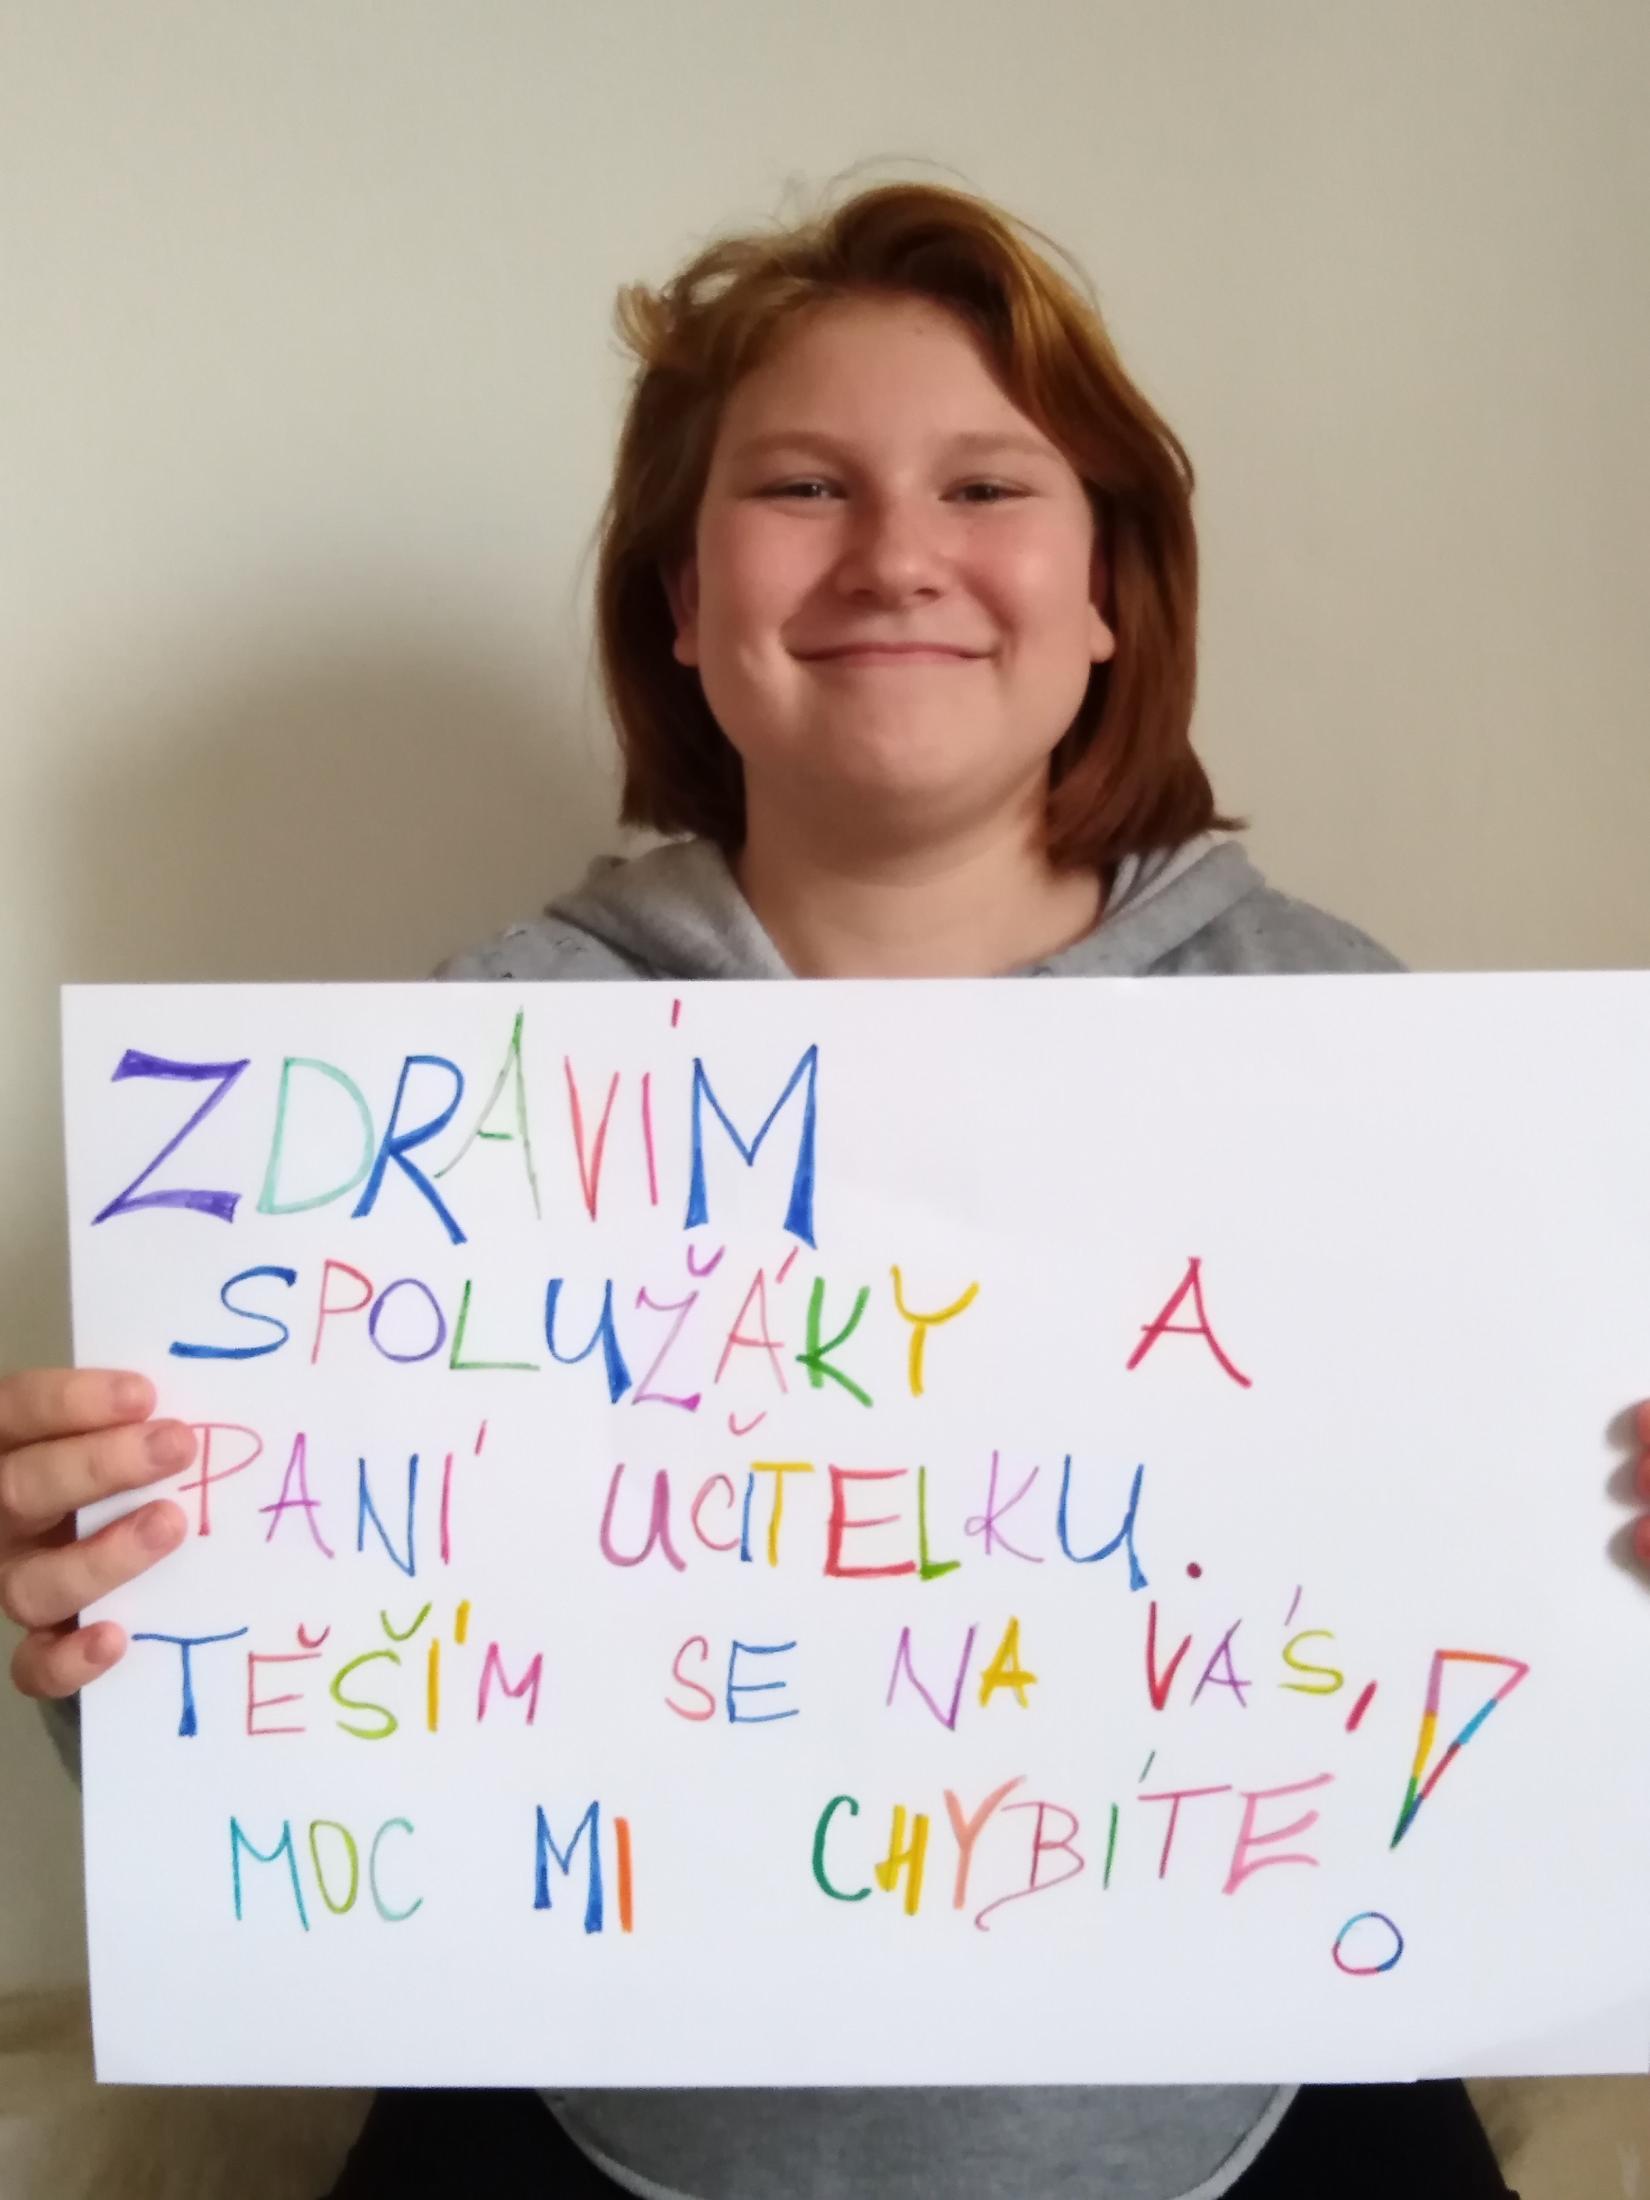 ZDRAVÍM
SPOLUŽÁKY A
PANÍ UČITELKU.
TĚŠÍM SE NA VÁS,
MOC MI CHYBÍTE!